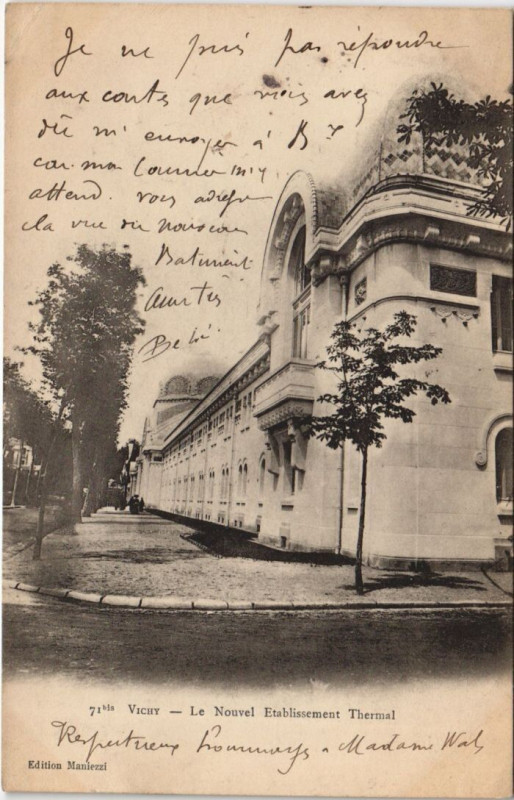 Je ne puis pas répondre
aux contes que vous avez
dû m'envoyer à
car mon Courrier m'y
attend. vous adresse
la vue du nouveau
Batiment
Amitiés
Bebé
71bis VICHY — Le Nouvel Etablissement Thermal
Respectueux hommages à Madame
Edition Maniezzi